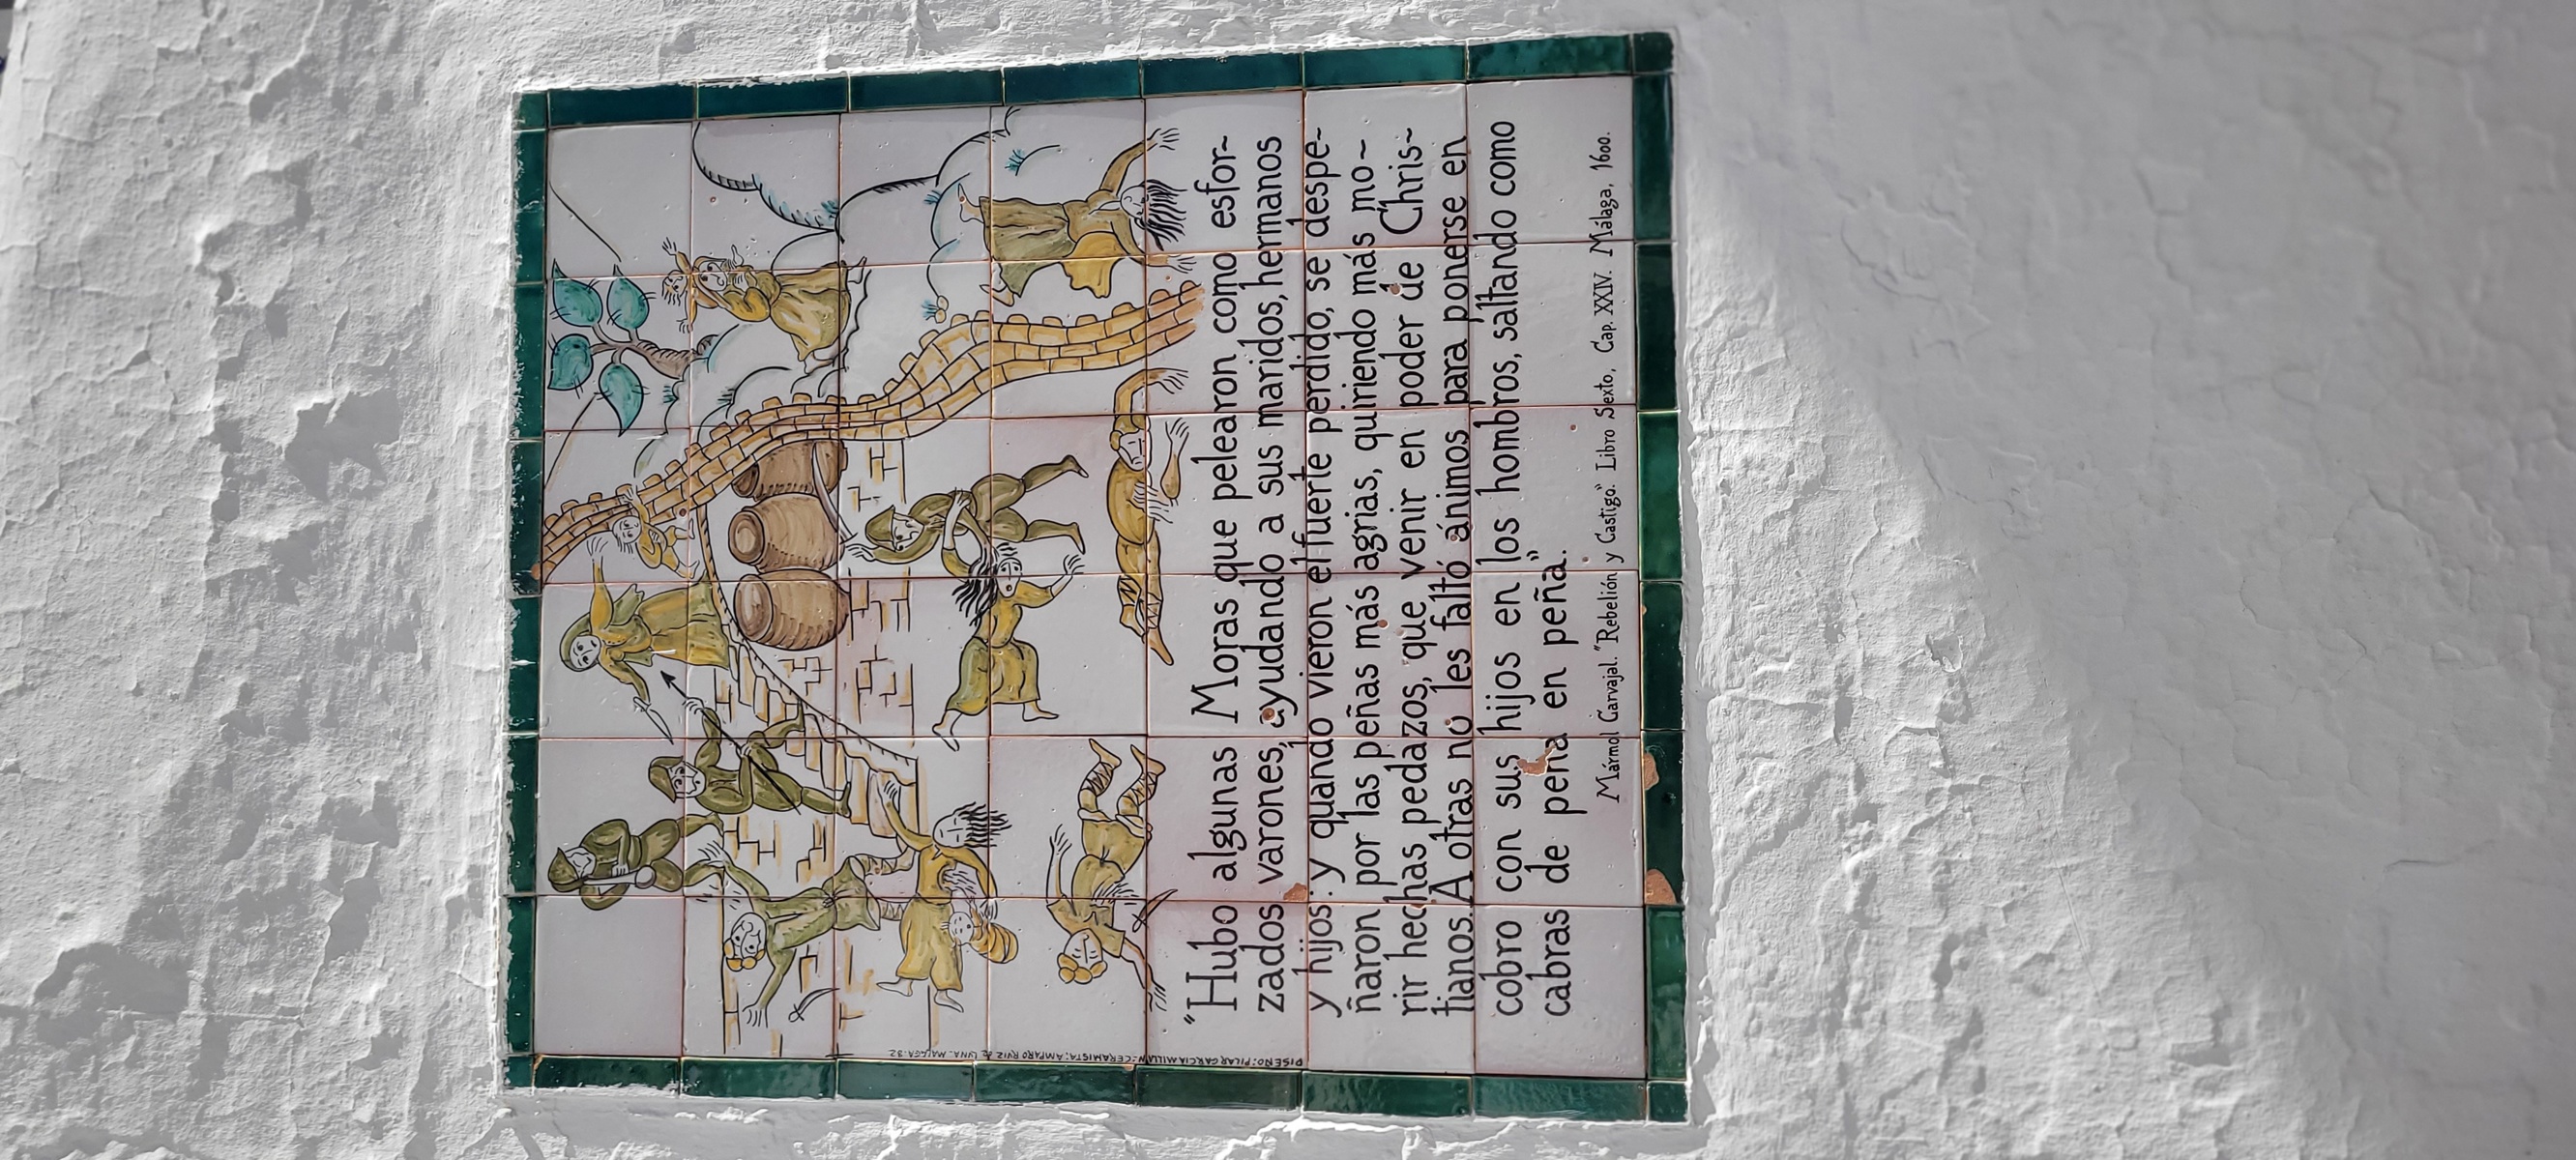 "Hubo algunas Moras que pelearon como esfor~
zados varones, ayudando a sus maridos, hermanos
y hijos: y quando vieron el fuerte perdido, se despe~
ñaron por las peñas más agrias, quiriendo más mo~
rir hechas pedazos, que venir en poder de Chris~
tianos. A otras no les faltó ánimos para ponerse en
cobro con sus hijos en los hombros, saltando como
cabras de peña en peña."
Mármol Carvajal. "Rebelión y Castigo." Libro Sexto, Cap. XXIV. Málaga, 1600.
DISEÑO: PILAR GARCIA MILLAN: CERAMISTA: AMPARO RUIZ de LUNA. MALAGA-82